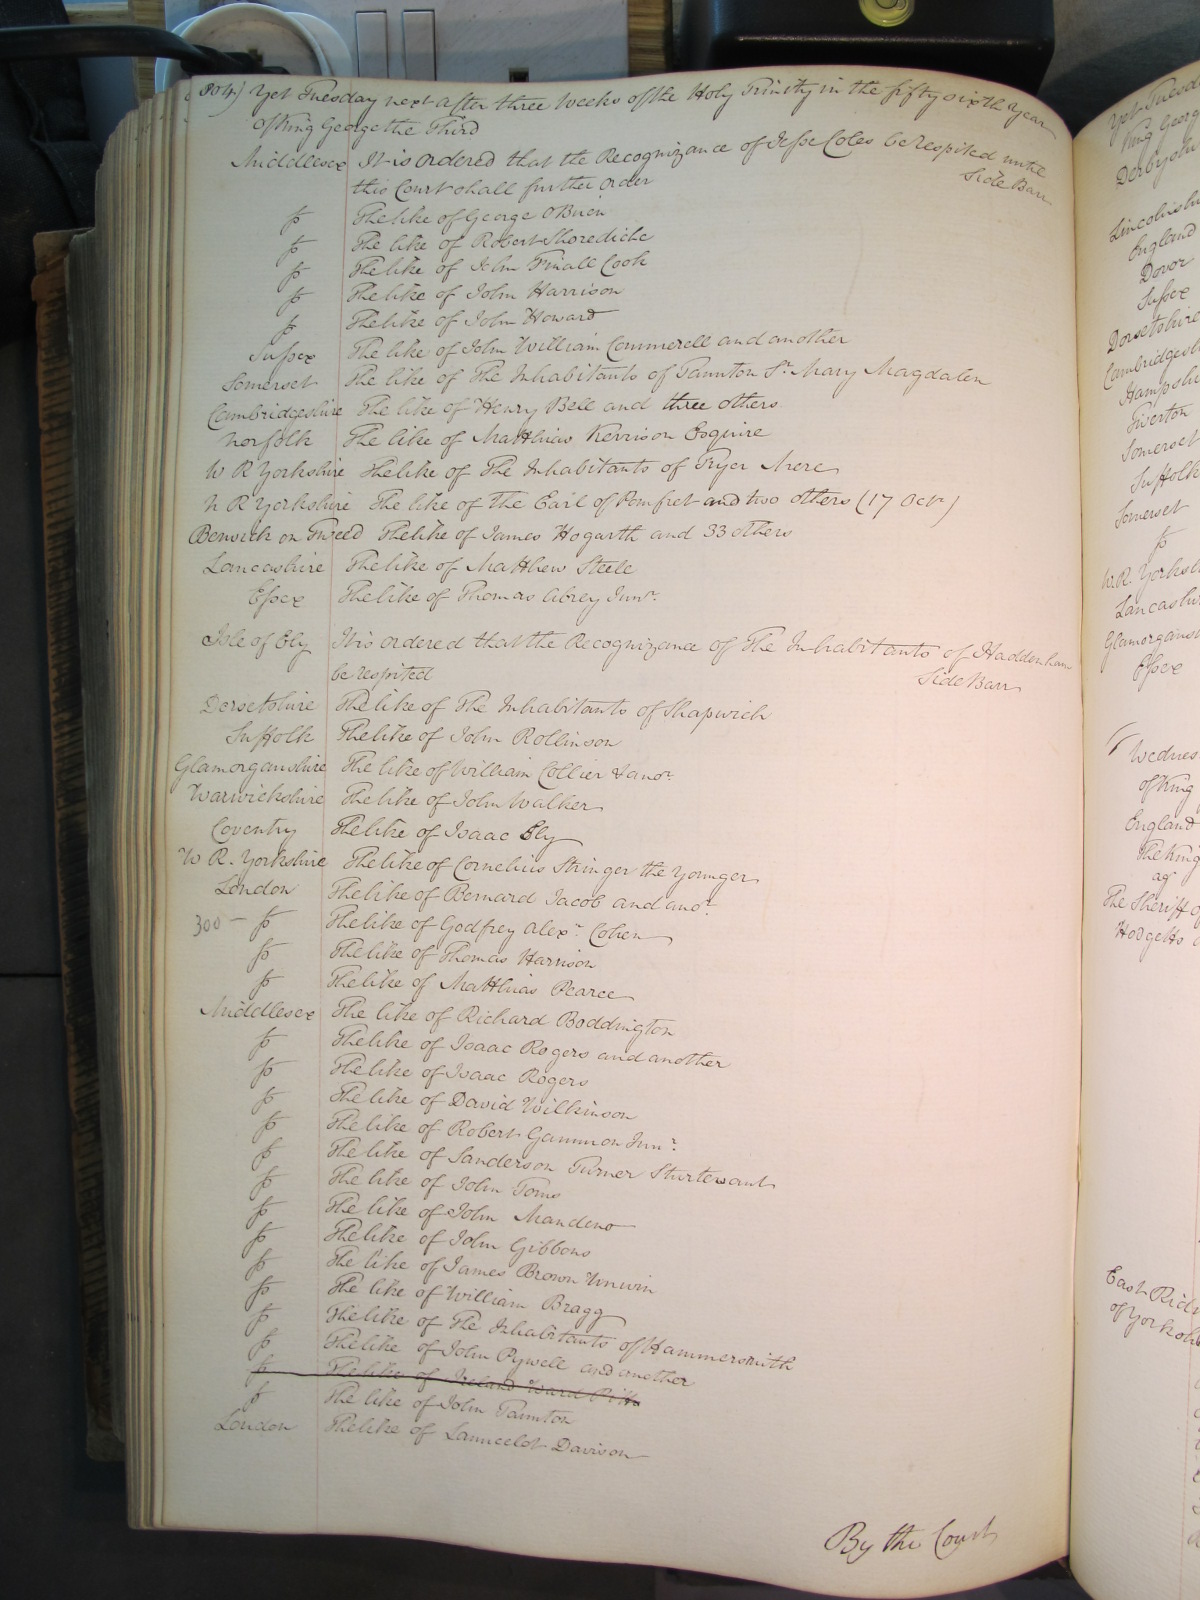 804) Yet Tuesday next after three Weeks of the Holy Trinity in the fifty sixth Year
of King George the Third
Middlesex It is ordered that the Recognizance of Jesse Coles be respited until
this Court shall further order Side Barr
fo The like of George OBrien
fo The like of Robert Shorediche
fo The like of John Finall Cook
fo The like of John Harrison
fo The like of John Howard
Sussex The like of John William Commerell and another
Somerset The like of The Inhabitants of Taunton St. Mary Magdalen
Cambridgeshire The like of Henry Bell and three others
Norfolk The like of Matthias Kerrison Esquire
W R Yorkshire The like of The Inhabitants of Fryer Mere
N R Yorkshire The like of The Earl of Pomfret and two others (17 Octr)
Berwick on Tweed The like of James Hogarth and 33 others
Lancashire The like of Matthew Steele
Essex The like of Thomas Abrey Junr.
Isle of Ely It is ordered that the Recognizance of The Inhabitants of Haddenham
be respited Side Barr
Dorsetshire The like of The Inhabitants of Shapwich
Suffolk The like of John Rollinson
Glamorganshire The like of William Collier & anor.
Warwickshire The like of John Walker
Coventry The like of Isaac Ely
W R. Yorkshire The like of Cornelius Stringer the Younger
London The like of Bernard Jacob and anor.
300 - fo The like of Godfrey Alexr. Cohen
fo The like of Thomas Harrison
fo The like of Matthias Pearce
Middlesex The like of Richard Boddington
fo The like of Isaac Rogers and another
fo The like of Isaac Rogers
fo The like of David Wilkinson
fo The like of Robert Gammon Junr.
fo The like of Sanderson Turner Sturtevant
fo The like of John Toms
fo The like of John Mandeno
fo The like of John Gibbons
fo The like of James Brown Unwin
fo The like of William Bragg
fo The like of The Inhabitants of Hammersmith
fo The like of John Pywell and another
fo The like of Ireland Ward Pitts
fo The like of John Taunton
London The like of Launcelot Davison
By the Court
Yet Tuesd
King Georg
Derbyshi
Lincolnshi
England
Dover
Sussex
Dorsetshire
Cambridgesh
Hampshi
Tiverton
Somerset
Suffolk
Somerset
fo
W.R. Yorks
Lancashi
Glamorgans
Essex
Wednes
of King
England
The King
agt
The Sheriff of
Hodgetts
East Ridi
of Yorksh